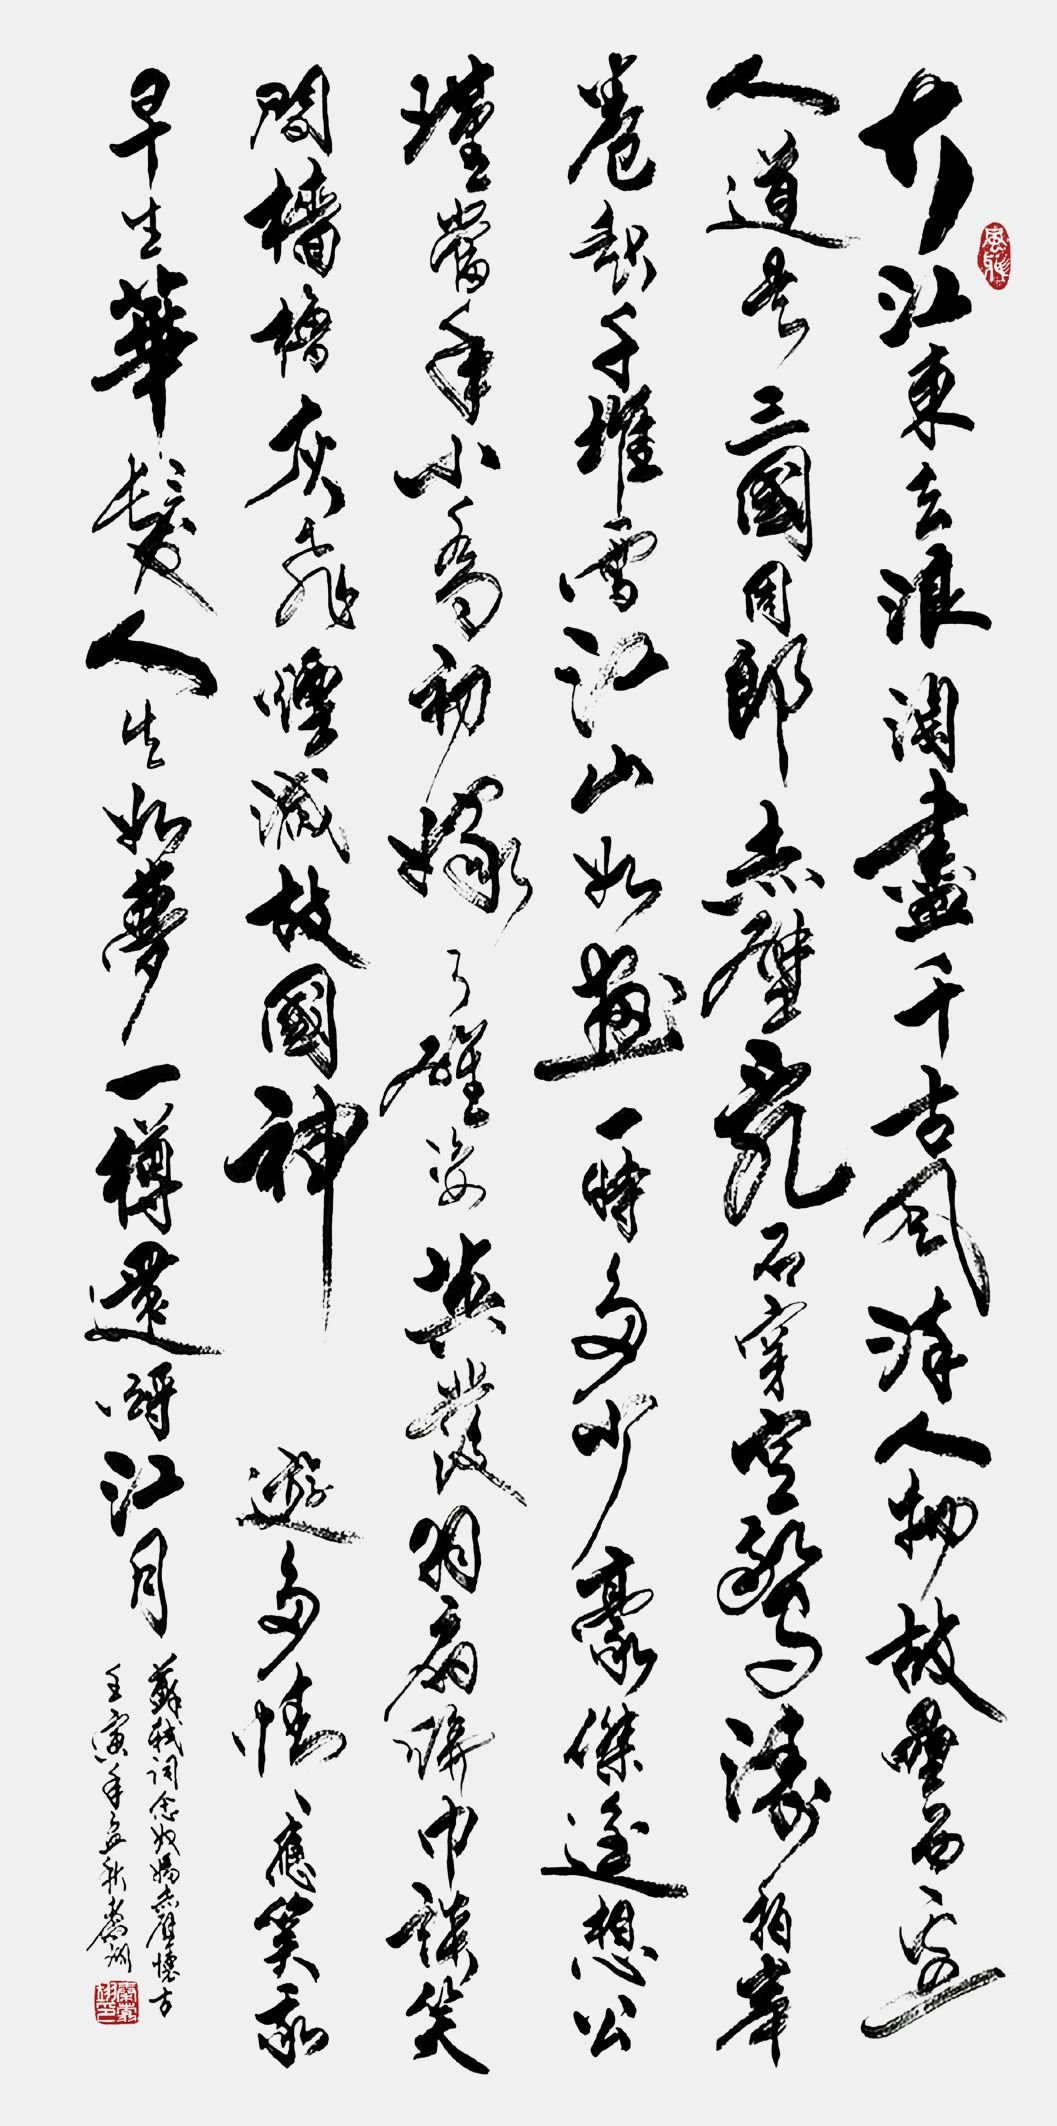 大江東去浪淘盡千古風流人物故壘西邊
人道是三國周郎赤壁亂石穿空驚濤拍岸
卷起千堆雪江山如畫一時多少豪傑遥想公
瑾當年小喬初嫁了雄姿英發羽扇綸巾談笑
間檣櫓灰飛煙滅故國神遊多情應笑我
早生華髮人生如夢一樽還酹江月
蘇軾詞念奴嬌赤壁懷古
壬寅年孟秋